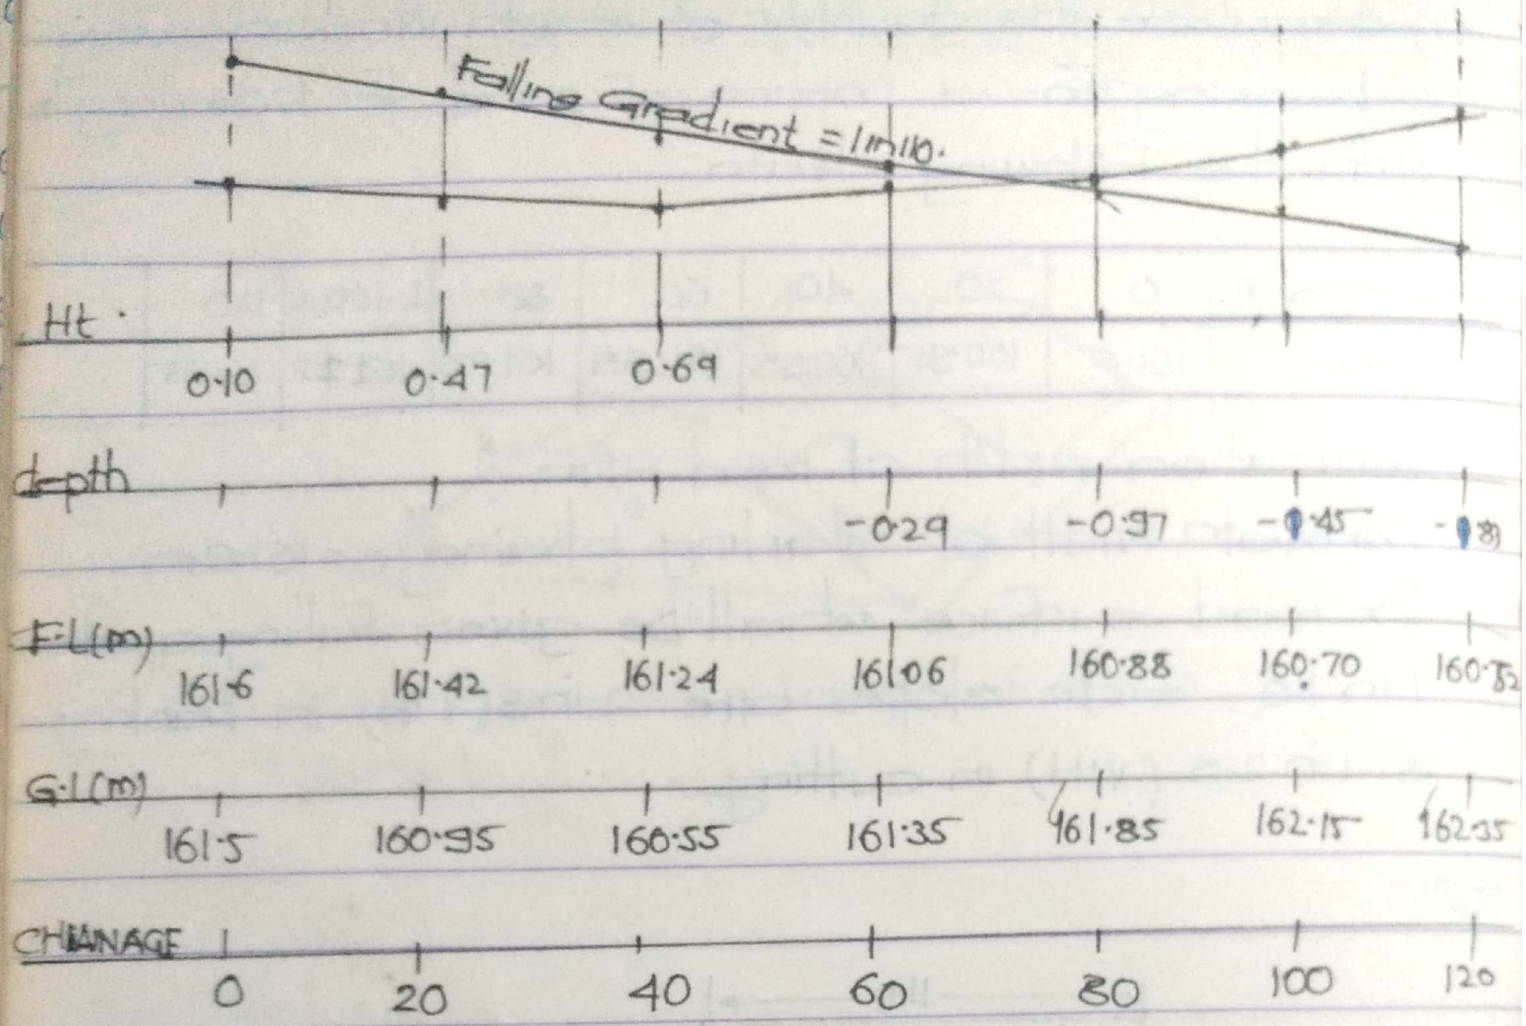 Falling Gradient = 1 in 110.
Ht.
0.10 0.47 0.69
depth
-0.29 -0.97 -1.45 -1.83
F.L(m)
161.6 161.42 161.24 161.06 160.88 160.70 160.52
G.L(m)
161.5 160.95 160.55 161.35 161.85 162.15 162.35
CHAINAGE
0 20 40 60 80 100 120